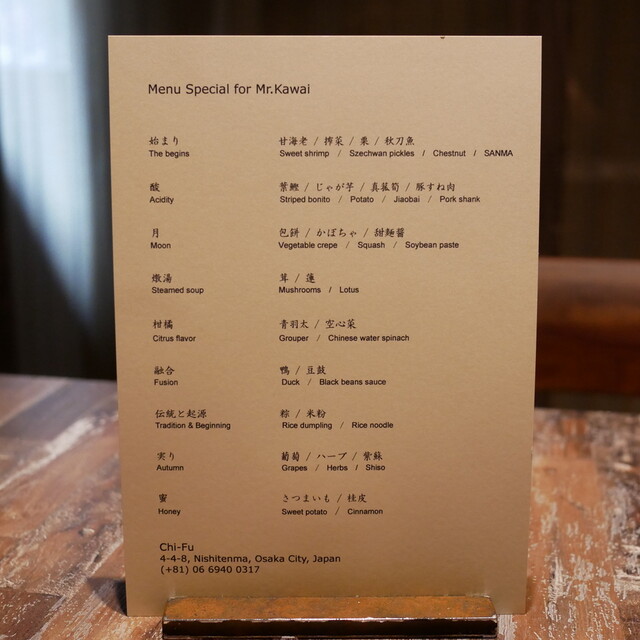 Menu Special for Mr.Kawai
始まり 甘海老 / 搾菜 / 栗 / 秋刀魚
The begins Sweet shrimp / Szechwan pickles / Chestnut / SANMA
酸 葉鰹 / じゃが芋 / 真菰筍 / 豚すね肉
Acidity Striped bonito / Potato / Jiaobai / Pork shank
月 包餅 / かぼちゃ / 甜麺醤
Moon Vegetable crepe / Squash / Soybean paste
燉湯 茸 / 蓮
Steamed soup Mushrooms / Lotus
柑橘 青羽太 / 空心菜
Citrus flavor Grouper / Chinese water spinach
融合 鴨 / 豆鼓
Fusion Duck / Black beans sauce
伝統と起源 粽 / 米粉
Tradition & Beginning Rice dumpling / Rice noodle
実り 葡萄 / ハーブ / 紫蘇
Autumn Grapes / Herbs / Shiso
蜜 さつまいも / 桂皮
Honey Sweet potato / Cinnamon
Chi-Fu
4-4-8, Nishitenma, Osaka City, Japan
(+81) 06 6940 0317